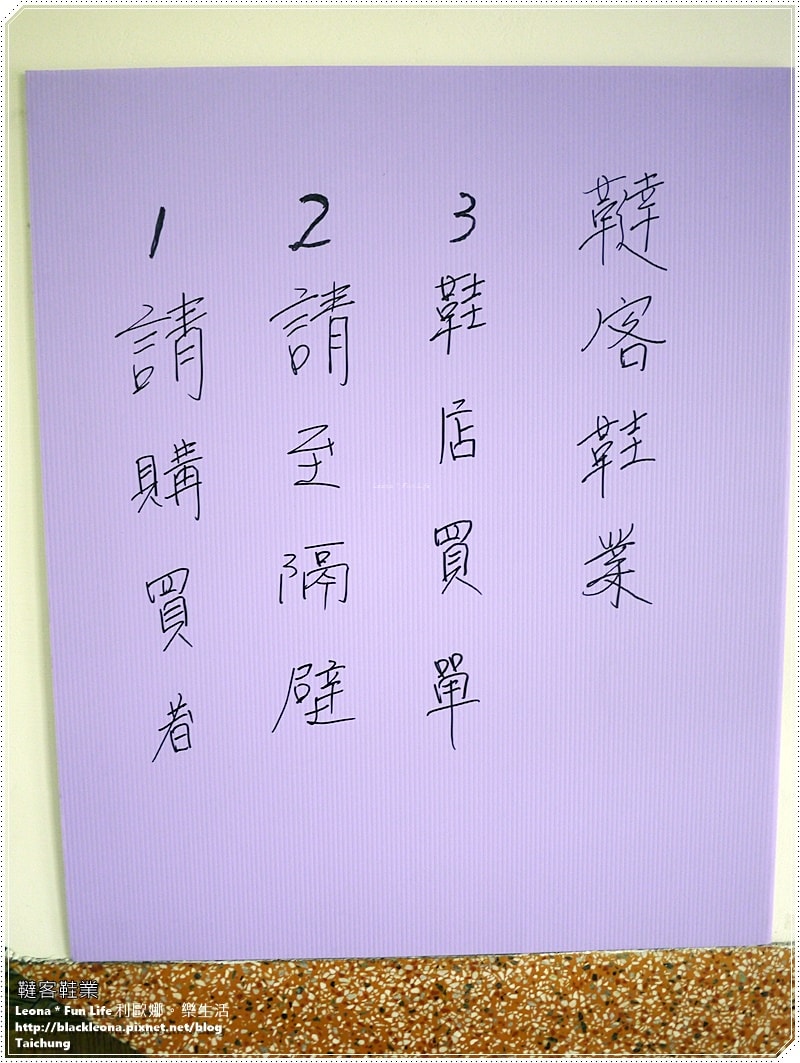 1請購買者
2請至隔壁
3鞋店買單
韃客鞋業
韃客鞋業
Leona * Fun Life 利歐娜。樂生活
http://blackleona.pixnet.net/blog
Taichung